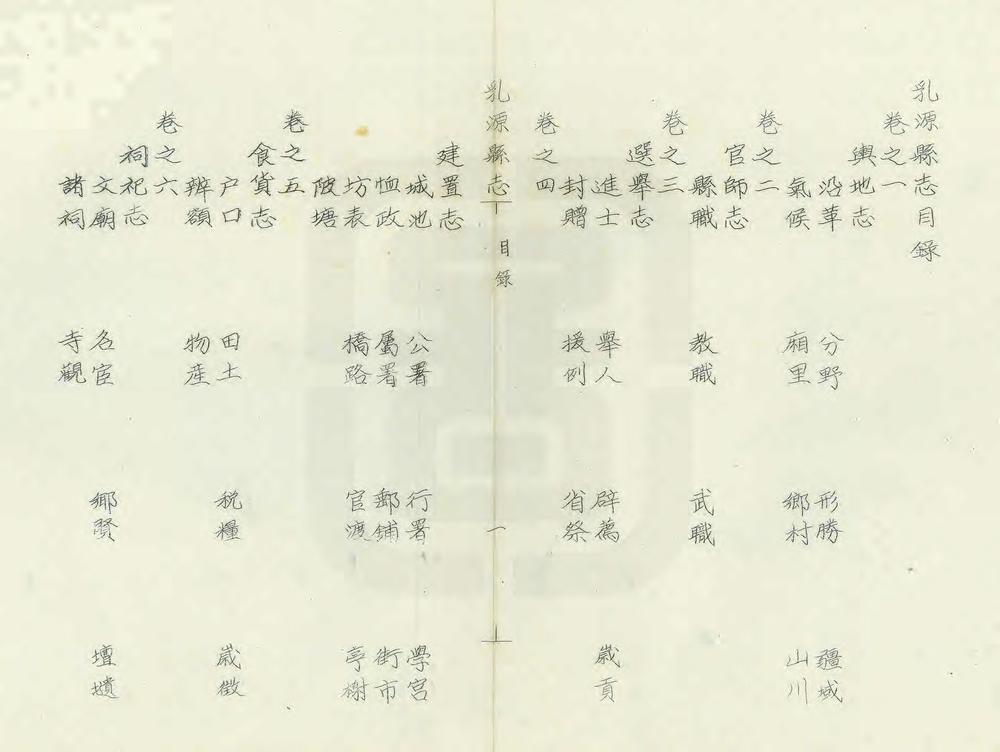 乳源縣志目錄
卷之一
輿地志
沿革 分野 形勝 疆域
氣候 廂里 鄉村 山川
卷之二
官師志
縣職 教職 武職
卷之三
選舉志
進士 舉人 辟薦 歲貢
封贈 援例 省祭
卷之四
乳源縣志 目錄 一
建置志
城池 公署 行署 學宮
恤政 屬署 郵鋪 街市
坊表 橋路 官渡 亭榭
陂塘
卷之五
食貨志
户口 田土 税糧 歲徵
辦額 物産
卷之六
祠祀志
文廟 名宦 鄉賢 壇壝
諸祠 寺觀